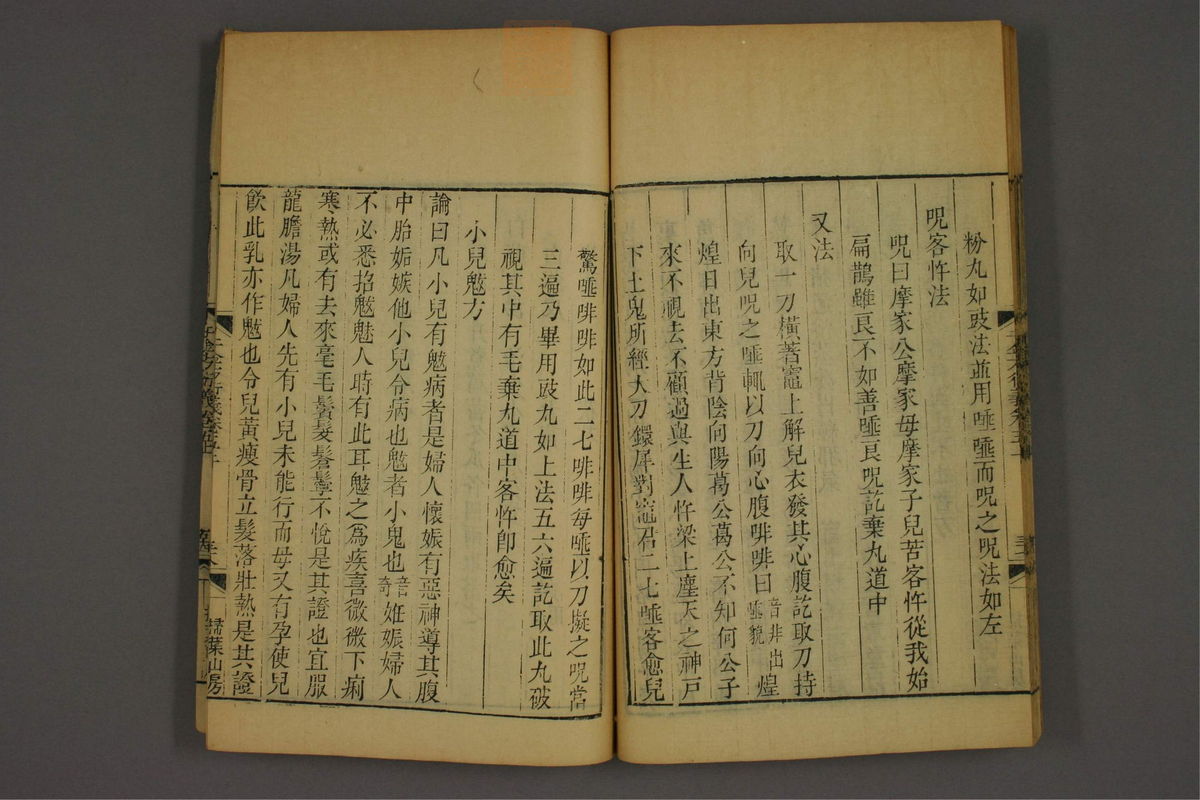 粉丸如豉法並用唾唾而呪之呪法如左
呪客忤法
呪曰摩家公摩家母摩家子兒苦客忤從我始
扁鵲雖良不如善唾良呪訖棄丸道中
又法
取一刀橫著竈上解兒衣發其心腹訖取刀持
向兒呪之唾輒以刀向心腹啡啡曰音非出唾貌煌
煌日出東方背陰向陽葛公葛公不知何公子
來不視去不顧過與生人忤梁上塵天之神戶
下土鬼所經大刀鐶犀對竈君二七唾客愈兒
驚唾啡啡如此二七啡啡每唾以刀擬之呪當
三遍乃畢用豉丸如上法五六遍訖取此丸破
視其中有毛棄丸道中客忤卽愈矣
小兒魃方
論曰凡小兒有魃病者是婦人懷娠有惡神導其腹
中胎妬嫉他小兒令病也魃者小鬼也音奇姙娠婦人
不必悉招魃魅人時有此耳魃之爲疾喜微微下痢
寒熱或有去來毫毛鬢髮鬇鬡不悅是其證也宜服
龍膽湯凡婦人先有小兒未能行而母又有孕使兒
飮此乳亦作魃也令兒黃瘦骨立髮落壯熱是其證
掃葉山房